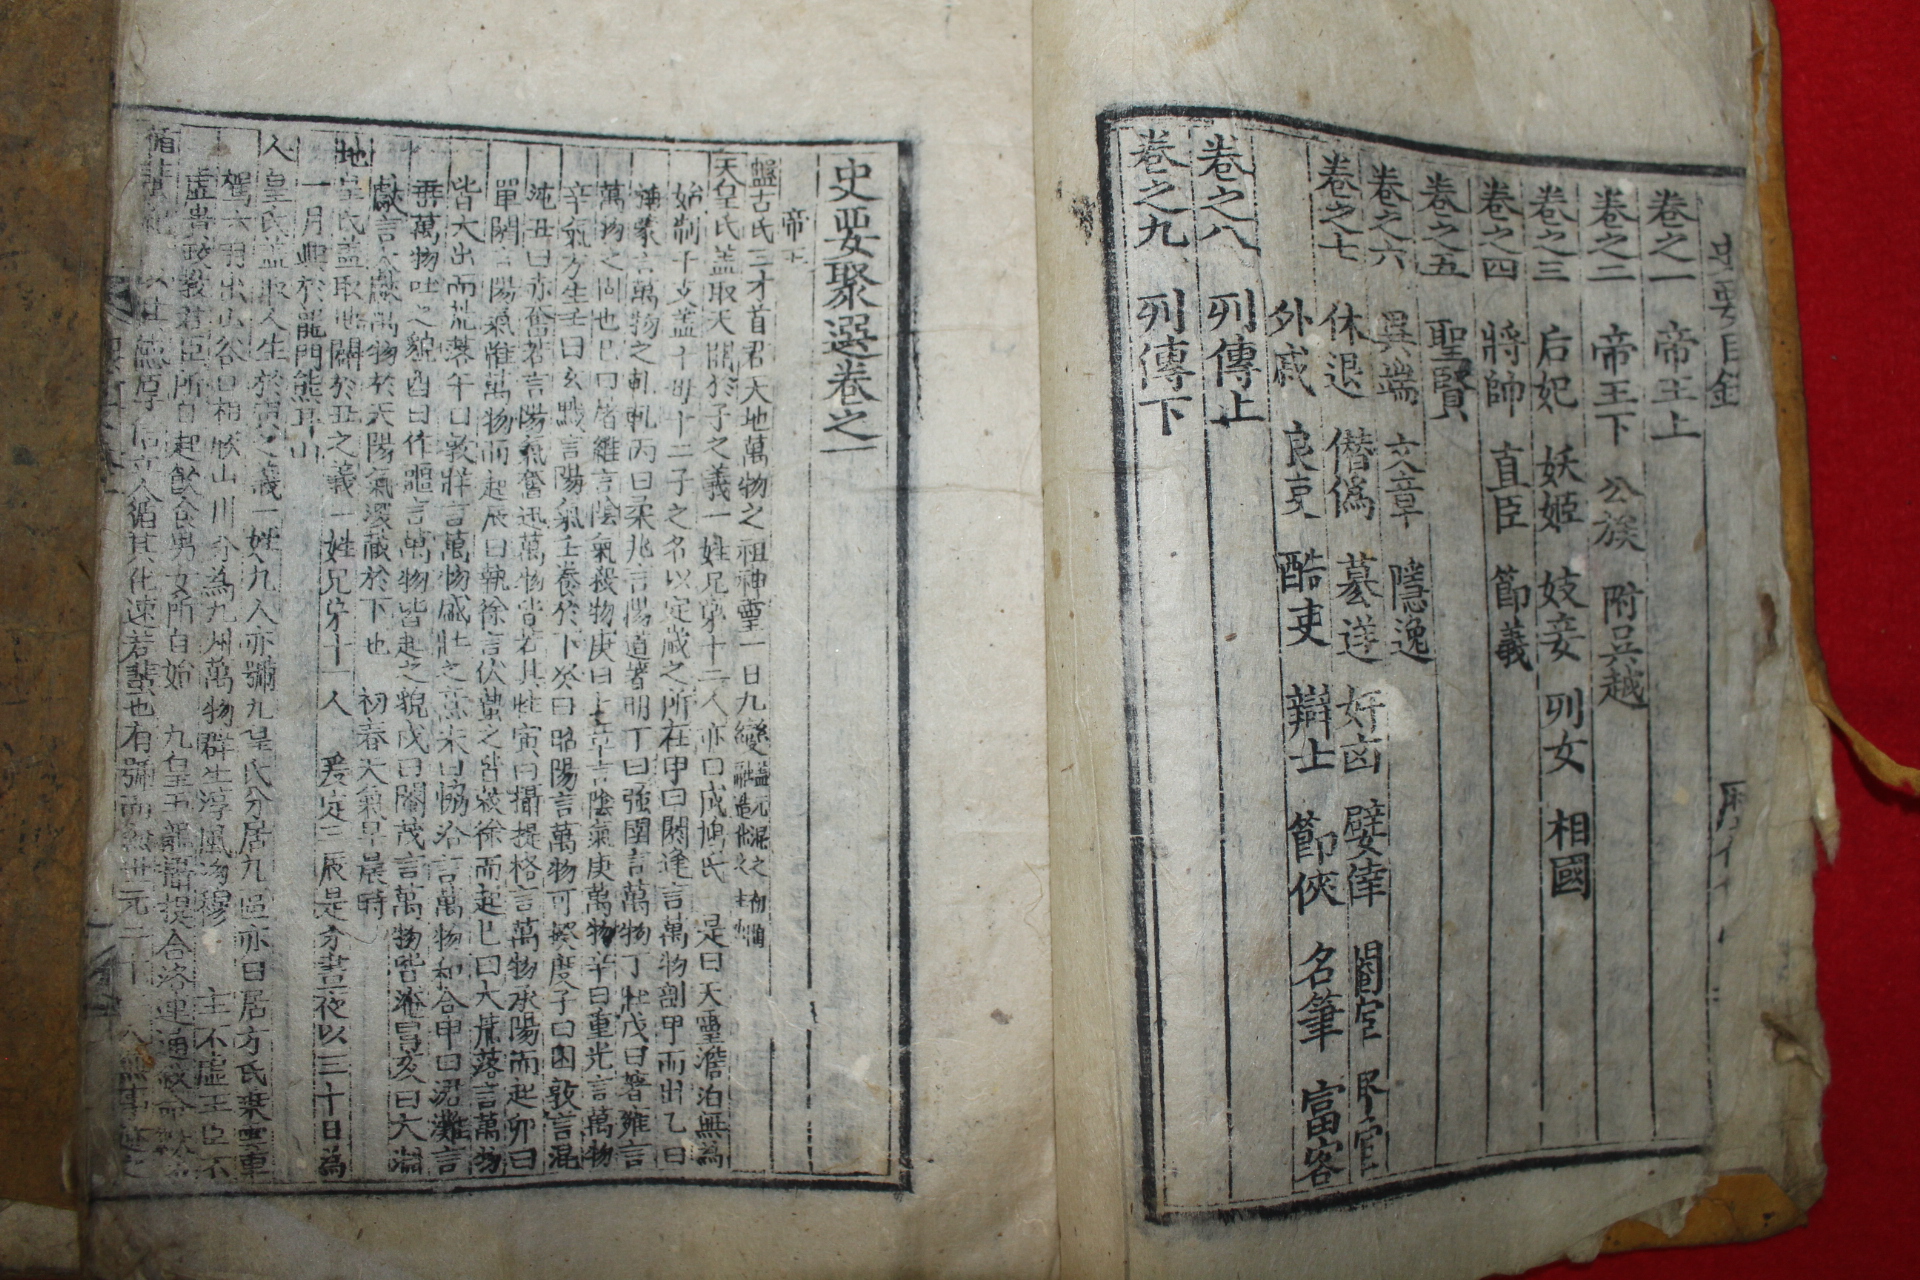 史要目錄
卷之一 帝王上
卷之二 帝王下 公族 附吳越
卷之三 后妃 妖姬 妓妾 列女 相國
卷之四 將帥 直臣 節義
卷之五 聖賢
卷之六 異端 文章 隱逸
卷之七 休退 僭僞 墓送 奸凶 嬖倖 閹宦
外戚 良吏 酷吏 辯士 節俠 名筆 富客
卷之八 列傳上
卷之九 列傳下
史要聚選卷之一
帝王
盤古氏三才首君天地萬物之祖神靈一日九變
天皇氏盖取天開於子之義一姓兄弟十二人亦曰成鳩氏 是曰天靈澹泊無為
始制干支盖十母十二子之名以定歲之所在甲曰閼逢言萬物剖甲而出乙曰
旃蒙言萬物之軋軋丙曰柔兆言陽道著明丁曰强圉言萬物丁壯戊曰著雍言
萬物之固也己曰屠維言陰氣穀物庚曰上章言陰氣庚萬物辛曰重光言萬物
辛氣方生壬曰玄黓言陽氣壬養於下癸曰昭陽言萬物可揆度子曰困敦言混
沌丑曰赤奮若言陽氣奮迅萬物皆若其性寅曰攝提格言萬物承陽而起卯曰
單閼言陽氣推萬物而起辰曰執徐言伏蟄之皆敖徐而起巳曰大荒落言萬物
皆大出而荒落午曰敦牂言萬物盛壯之意未曰協洽言萬物和合申曰涒灘言
萬物吐之貌酉曰作噩言萬物皆起之貌戌曰閹茂言萬物皆淹冒亥曰大淵
獻言大獻萬物於天陽氣深藏於下也 初春天氣早晨時
地皇氏盖取地闢於丑之義一姓兄弟十一人 爰定三辰是分晝夜以三十日為
一月興於龍門熊耳山
人皇氏盖取人生於寅之義一姓九人亦號九皇氏分居九區亦曰居方氏乘雲車
駕六羽出谷口相厥山川分為九州萬物群生淳風沕穆 主不虛王臣不
虛貴政敎君臣所自起飮食男女所自始 九皇五龍攝提合洛連通叙命
循蜚紀 人循其化速若蜚也有號